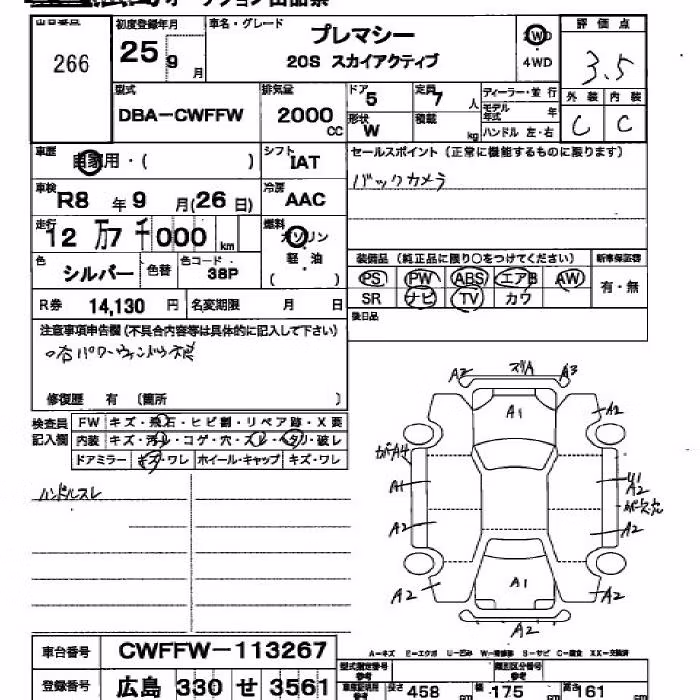 広島オークション出品票
出品番号 266
初度登録年月 25 9月
車名・グレード プレマシー 20S スカイアクティブ
2WD 4WD
評価点 3.5
外装 内装
C C
型式 DBA-CWFFW
排気量 2000 CC
ドア 5
形状 W
定員 7 人
積載 kg
ディーラー・並行
モデル年式 年
ハンドル 左・右
車歴 自家用・( )
シフト IAT
セールスポイント(正常に機能するものに限ります)
バックカメラ
車検 R8 年 9 月(26 日)
冷房 AAC
走行 12 万 7 千 000 km
燃料 ガソリン 軽・油 ( )
色 シルバー 色替
色コード 38P
装備品(純正品に限り○をつけてください) 新車保証書
PS PW ABS エアB AW 有・無
SR ナビ TV カワ
R券 14,130 円 名変期限 月 日
後日品
注意事項申告欄(不具合内容等は具体的に記入して下さい)
修復歴 有 (箇所 )
検査員記入欄
FW キズ・飛石・ヒビ割・リペア跡・X要
内装 キズ・汚レ・コゲ・穴・スレ・タリ・破レ
ドアミラー キズ・ワレ ホイール・キャップ キズ・ワレ
ハンドルスレ
A2 スリA A3
A1 A2
ガバA4
A1
U1
A2
A2 A2
A2 A1 A2
A2
A-キズ E-エクボ U-凹み W-補修跡 S-サビ C-腐食 XX-交換済
車台番号 CWFFW-113267
登録番号 広島 330 せ 3561
型式指定番号 参考
類別区分番号 参考
長さ 458 cm 幅 175 cm 高さ 161